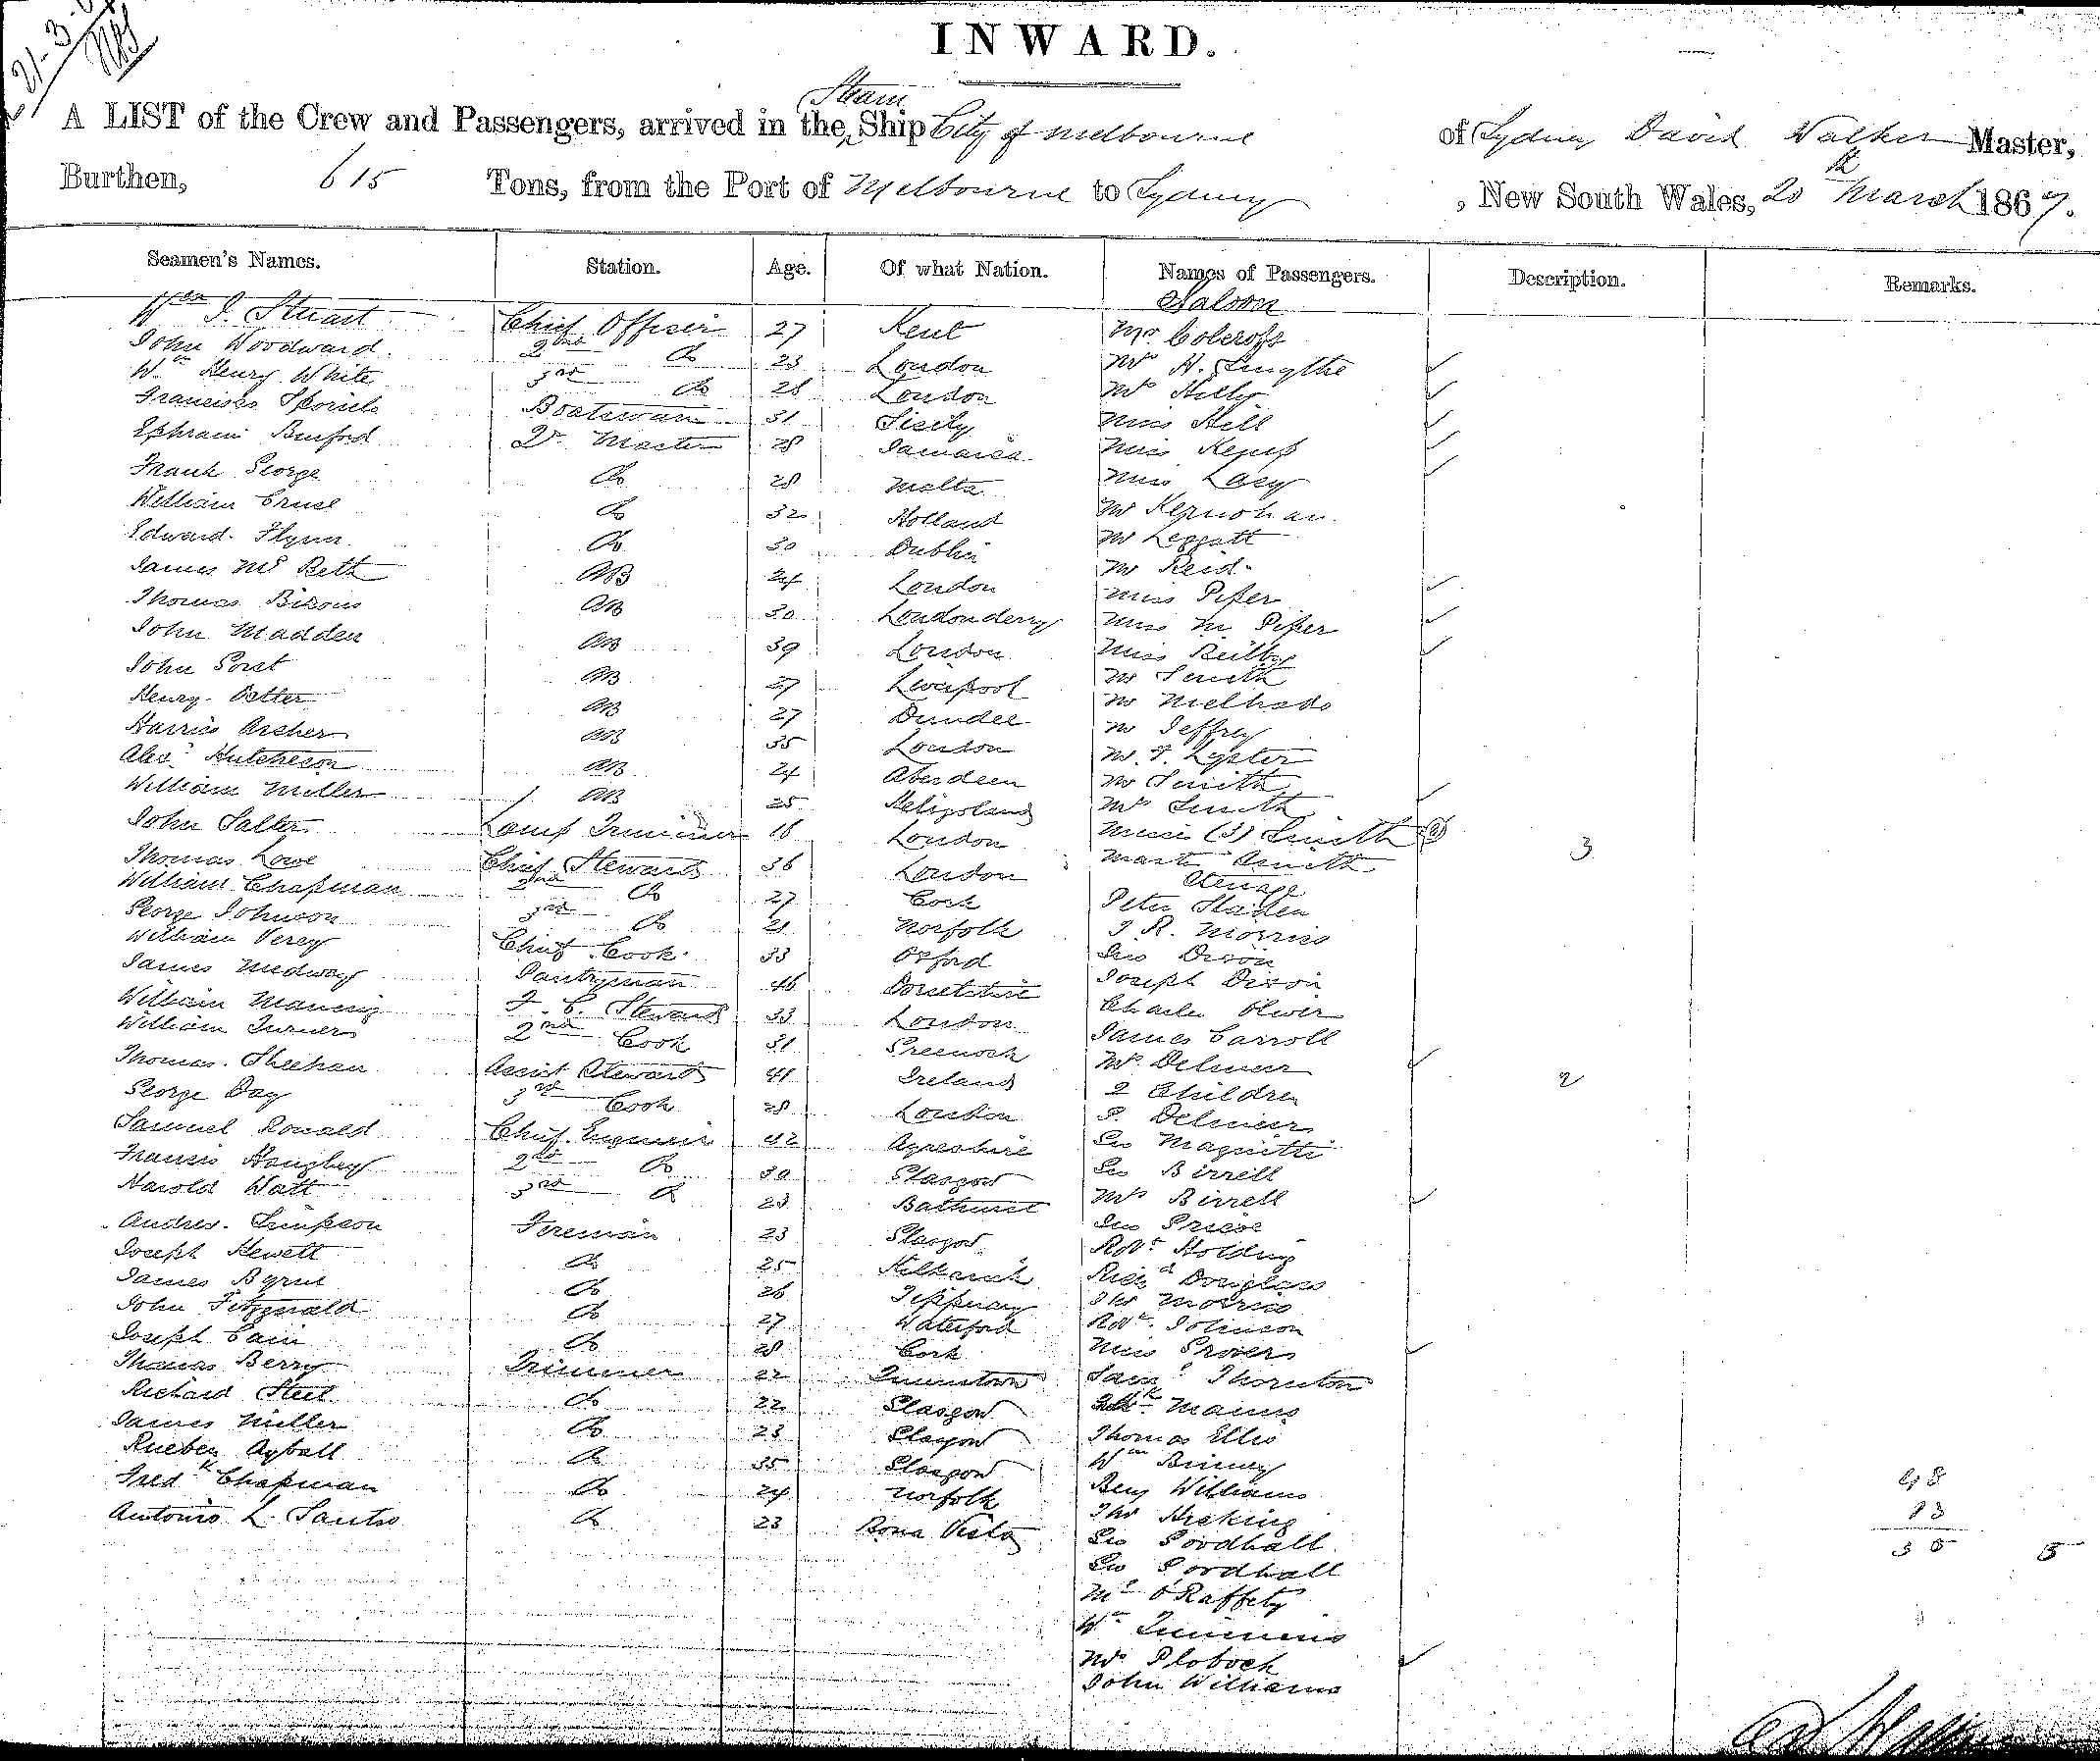 21-3-
INWARD.
A LIST of the Crew and Passengers, arrived in the Steam Ship City of Melbourne of Sydney David Walker Master,
Burthen, 615 Tons, from the Port of Melbourne to Sydney, New South Wales, 20th March 1867.
Seamen's Names. Station. Age. Of what Nation. Names of Passengers. Description. Remarks.
Saloon
Wm J. Stuart Chief Officer 27 Kent Mr
John Woodward 2nd Do 23 London Mrs H.
Wm Henry White 3rd Do 28 London Mrs
Francisco Boatswain 31 Sicily Miss Hill
Ephraim Binford Qr Master 28 Jamaica Miss Kemp
Frank George Do 28 Malta Miss Lacy
William Cruse Do 32 Holland Mr Kernohan
Edward Flynn Do 30 Dublin Mr Leggatt
James McBeth AB 24 London Mr Reid
Thomas AB 30 Londonderry Miss Piper
John Madden AB 39 London Miss M Piper
John AB 27 Liverpool Miss Reilly
Henry Potter AB 27 Dundee Mr Smith
Harris Archer AB 35 London Mr Melhado
Alexr Hutcheson AB 24 Aberdeen Mr Jeffrey
William Miller AB 25 Heligoland Mr F. Lyster
John Salter Lamp Trimmer 16 London Mr Smith
Mrs Smith
Thomas Lowe Chief Steward 36 London Misses (3) Smith 3
William Chapman 2nd Do 27 Cork Master Smith
Steerage
George Johnson 3rd Do 21 Norfolk Peter Sladen
William Verey Chief Cook 33 Oxford J R. Morris
James Medway Pantryman 46 Dorsetshire Geo Dixon
William Manning F. C. Steward 33 London Joseph Dixon
William Turner 2nd Cook 31 Greenock Charles Oliver
Thomas Sheehan Assist Steward 41 Ireland James Carroll
George Day 3rd Cook 28 London Mrs Delmeer
2 Children 2
Samuel Ronald Chief Engineer 42 Ayreshire Delmeer
Francis 2nd Do 30 Glasgow Geo
Harold Watt 3rd Do 23 Bathurst Geo Birrell
Mrs Birrell
Andrew Simpson Fireman 23 Glasgow Geo
Joseph Hewett Do 25 Robt Holding
James Byrne Do 26 Tipperary Richd Douglass
John Fitzgerald Do 27 Waterford Thos Morris
Joseph Cain Do 28 Cork Robt Johnson
Thomas Berry Trimmer 22 Queenstown Miss
Richard Steel Do 22 Glasgow Saml Thornton
James Miller Do 23 Glasgow Manns
Rueben Ayball Do 35 Glasgow Thomas Ellis
Fredk Chapman Do 24 Norfolk Wm Binney
Antonio L. Santso Do 23 Bona Vista Benj Williams
Thos Hosking
Geo Goodhall
Geo Goodhall
O'Raffety
Wm Timmins
Mrs
John Williams
48
13
35 5